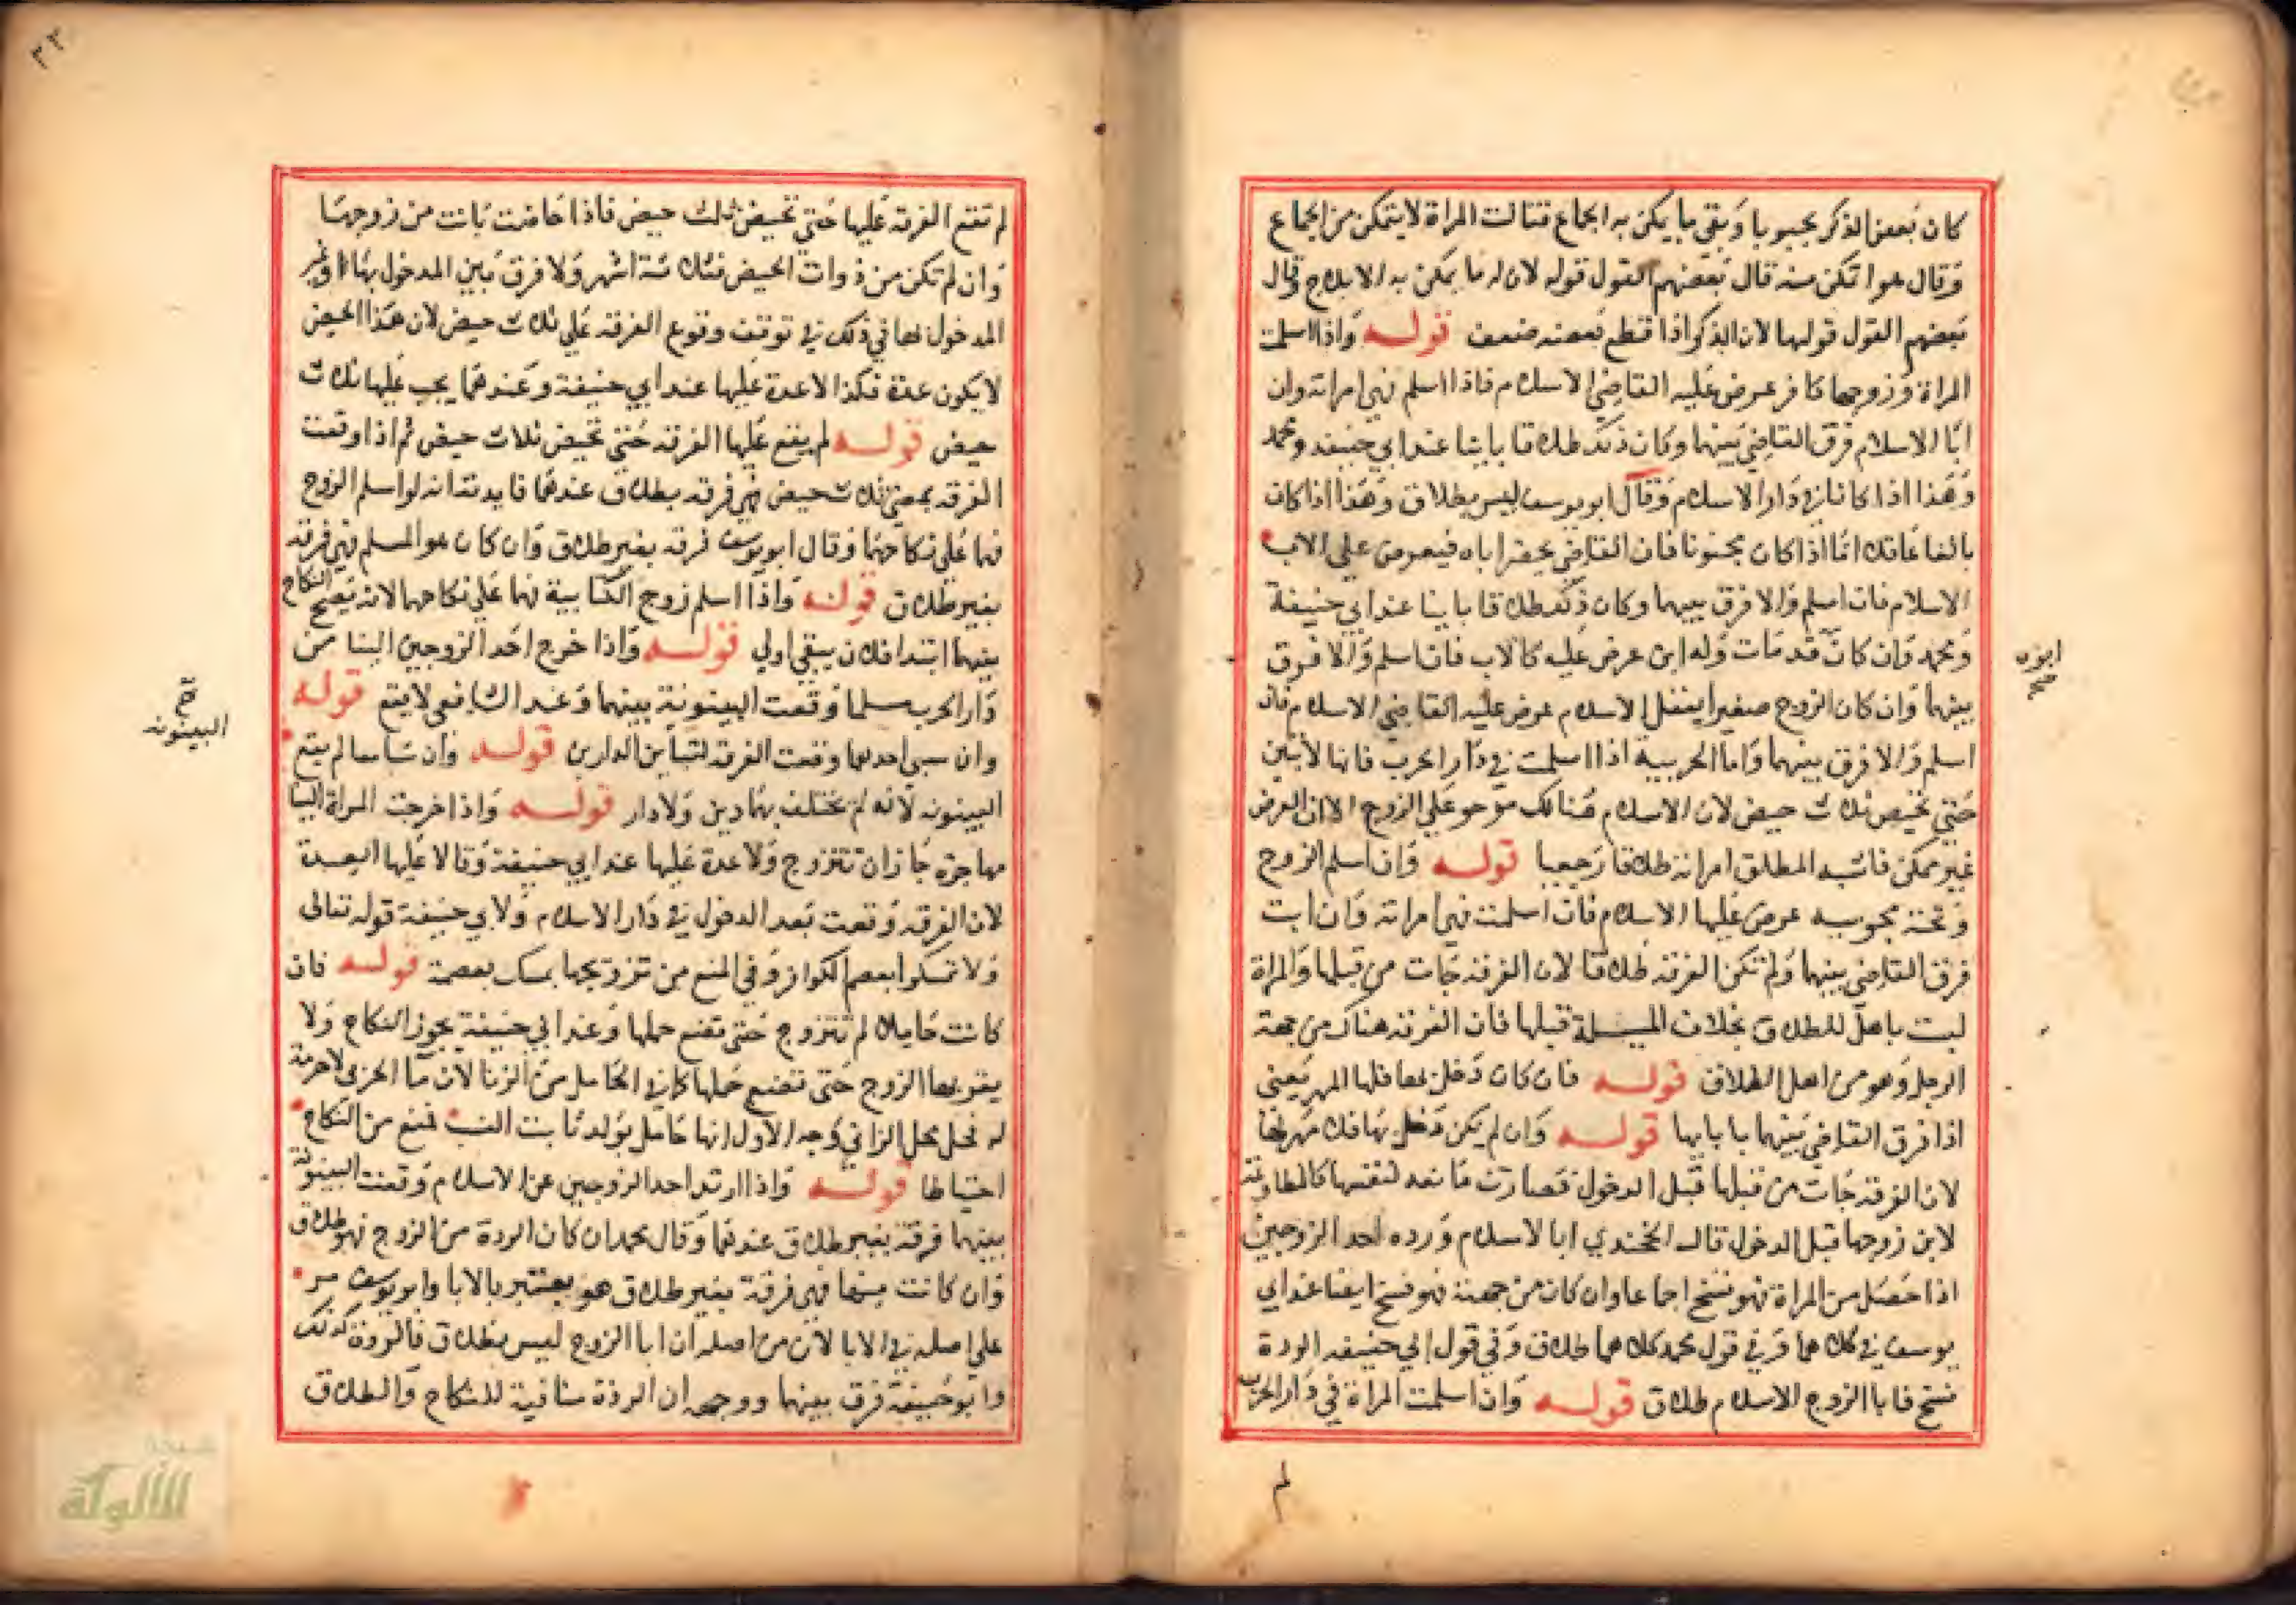 كان بعض الذكر مجبوبا وبقي ما يمكن به الجماع فقالت المراة لا يتمكن من الجماع
وقال هو اتمكن منه قال بعضهم القول قوله لان له ما يمكن به الايلاج وقال
بعضهم القول قولها لان الذكر اذا قطع بعضه ضعف قوله واذا اسلمت
المراة وزوجها كافر عرض عليه القاضي الاسلام فاذا اسلم فهي امراته وان
ابا الاسلام فرق القاضي بينهما وكان ذلك طلاقا باينا عند ابي حنيفه ومحمد
وهذا اذا كانا في دار الاسلام وقال ابو يوسف ليس بطلاق وهذا اذا كان
بالغا عاقلا اما اذا كان مجنونا فان القاضي يحضر اباه فيعرض على الاب
الاسلام فان اسلم والا فرق بينهما وكان ذلك طلاقا باينا عند ابي حنيفة
ومحمد وان كان قد مات وله ابن عرض عليه كالاب فان اسلم والا فرق
بينهما وان كان الزوج صغيرا يعقل الاسلام عرض عليه القاضي الاسلام فان
اسلم والا فرق بينهما واما الحربية اذا اسلمت في دار الحرب فانها لا تبين
حتى تحيض ثلاث حيض لان الاسلام هنالك مرجو على الزوج الا ان العرض
غير ممكن فاشبه المطلق امراته طلاقا رجعيا قوله وان اسلم الزوج
وتحته مجوسيه عرض عليها الاسلام فان اسلمت فهي امراته وان ابت
فرق القاضي بينهما ولم تكن الفرقه طلاقا لان الفرقة جات من قبلها والمراة
ليت باهل للطلاق بخلاف المسلة قبلها فان الفرقه هناك من جهة
الرجل وهو من اهل الطلاق قوله فان كان دخل بها فلها المهر يعني
اذا فرق القاضي بينهما بابايها قوله وان لم يكن دخل بها فلا مهر لها
لان الفرقة جات من قبلها قبل الدخول فصارت لنفسها كالمطاوعة
لابن زوجها قبل الدخول قال الخجندي ابا الاسلام ورده احد الزوجين
اذا حصل من المراة فهو فسخ اجماعا وان كان من جهته فهو فسخ ايضا عند ابي
يوسف في كلاهما وفي قول محمد كلاهما طلاق وفي قول ابي حنيفه الردة
فسخ فابا الزوج الاسلام طلاق قوله وان اسلمت المراة في دار الحرب
لم
ابوه
لم تقع الفرقه عليها حتى تحيض ثلاث حيض فاذا حاضت بانت من زوجها
وان لم تكن من ذوات الحيض فثلاثة اشهر ولا فرق بين المدخول بها او غير
المدخول بها في ذلك في توقف وقوع الفرقه على ثلاث حيض لان هذا الحيض
لا يكون عدة فكذا لا عدة عليها عند ابي حنيفة وعندهما يجب عليها ثلاث
حيض قوله لم يقع عليها الفرقه حتى تحيض ثلاث حيض ثم اذا وقعت
الفرقه بمضي ثلاث حيض فهي فرقه بطلاق عندهما فايدته انه لو اسلم الزوج
فهما على نكاحهما وقال ابو يوسف فرقه بغير طلاق وان كان هو المسلم فهي فرقه
بغير طلاق قوله واذا اسلم زوج الكتابية فهما على نكاحهما لانه يصح النكاح
بينهما ابتدا فلان يبقى اولى قوله واذا خرج احد الزوجين الينا من
دار الحرب مسلما وقعت البينونة بينهما وعند الشافعي لا يقع قوله
وان سبي احدهما وقعت الفرقه لتباين الدارين قوله وان سبيا معا لم يقع
البينونه لانه لم يختلف بهما دين ولا دار قوله واذا خرجت المراة الينا
مهاجرة جاز ان تتزوج ولا عدة عليها عند ابي حنيفة وقالا عليها العدة
لان الفرقه وقعت بعد الدخول في دار الاسلام ولابي حنيفة قوله تعالى
ولا تمسكوا بعصم الكوافر وفي المنع من تزويجها تمسك بعصمة قوله فان
كانت حاملا لم تتزوج حتى تضع حملها وعند ابي حنيفة يجوز النكاح ولا
يقربها الزوج حتى تضع حملها كما في الحامل من الزنا لان ما الحربي لا حرمة
له فحل محل الزاني وجه الاول انها حامل بولد ثابت النسب فمنع من النكاح
احتياطا قوله واذا ارتد احد الزوجين عن الاسلام وقعت البينونة
بينهما فرقة بغير طلاق عندهما وقال محمد ان كان الردة من الزوج فهو طلاق
وان كانت منها فهي فرقة بغير طلاق هو يعتبر بالابا وابو يوسف مر
على اصله في الابا لان من اصله ان ابا الزوج ليس بطلاق فالردة كذلك
وابو حنيفة فرق بينهما ووجهه ان الردة منافية للنكاح والطلاق
تقع
البينونه
٣٣
الألوكة